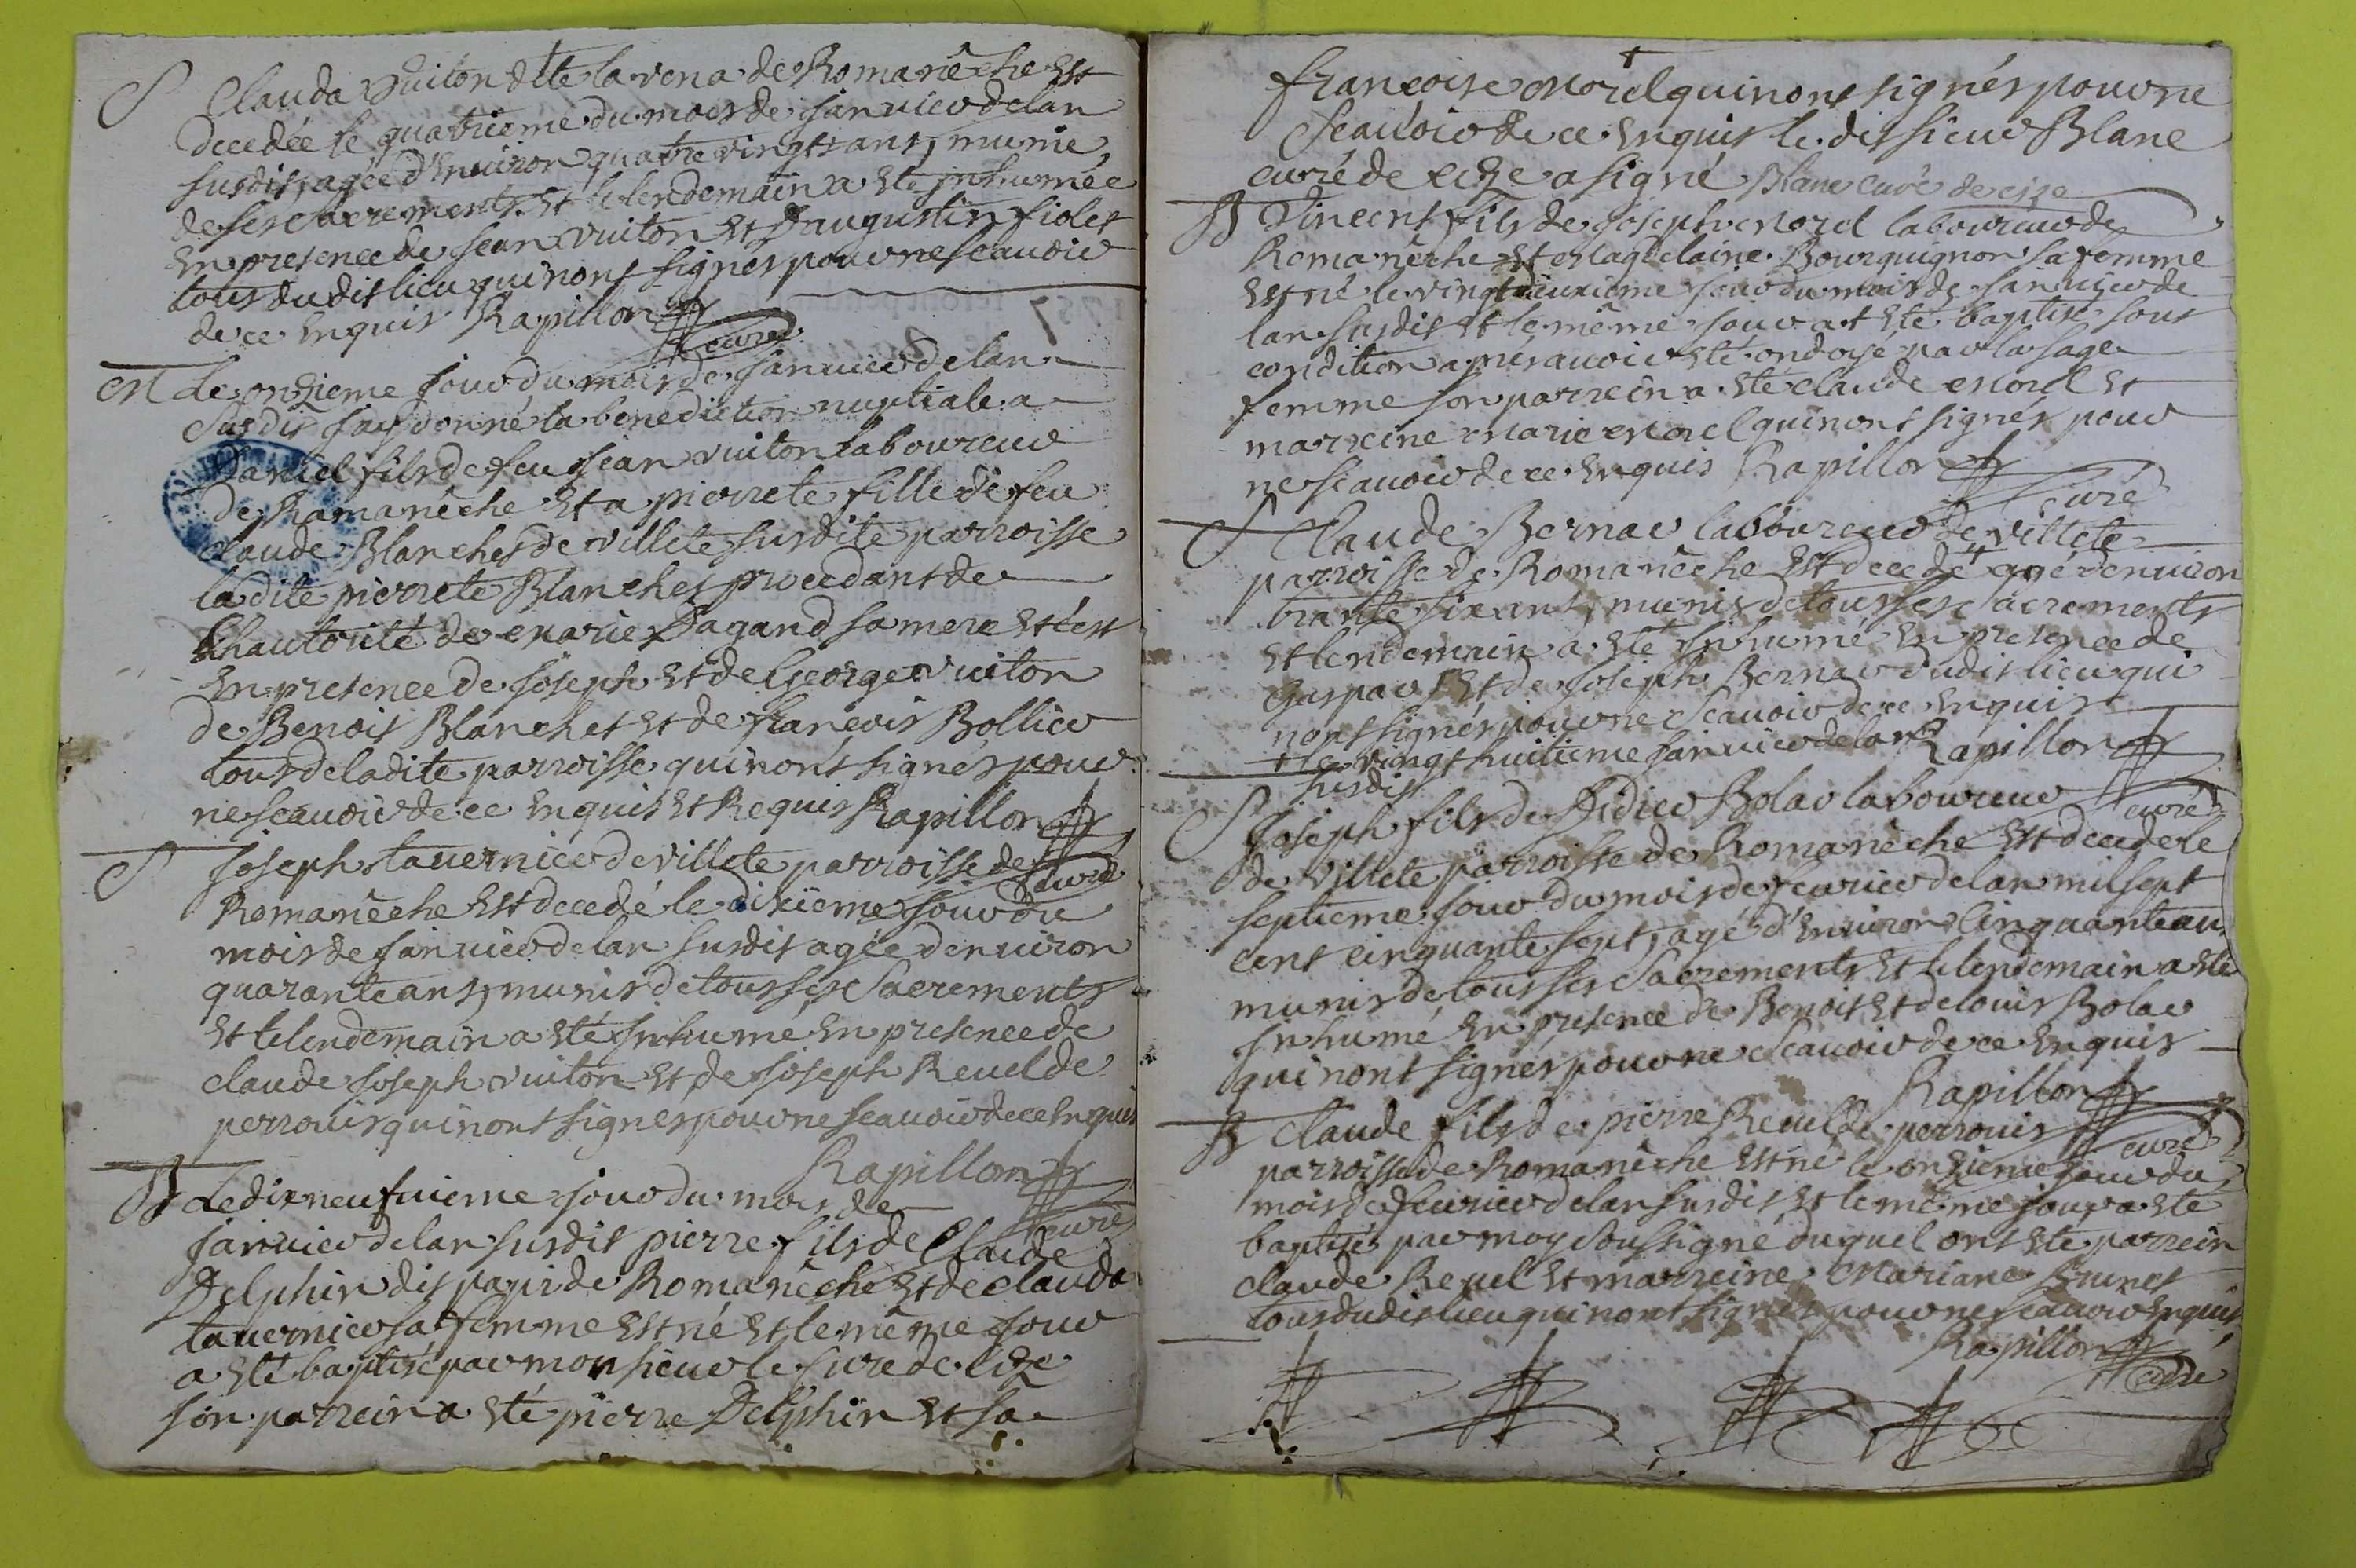 S Clauda Vuiton dite la rena de Romanêche Est
decedée le quatrieme du mois de janvier de lan
susdit, agée d'Environ quatre vingts ans, munie
de ses sacrements. Et le lendemain a Eté inhumée
En presence de jean vuiton Et d'augustin fiolet
tous du dit lieu qui nont signes pour ne scauoir
de ce Enquis Rapillon
curé
M Le onzieme jour du mois de januier de lan
Susdit jay donné la benediction nuptiale a
Daniel fils de feu jean vuiton laboureur
de Romanêche Et a pierrete fille de feu
claude Blanchet de villete susdite parroisse
la dite pierrete Blanchet procedant de
Lhautorité de marie Pagand sa mere Et c'est
En presence de joseph Et de George vuiton
de Benoit Blanchet Et de francois Bollier
tous de la dite parroisse qui nont signés pour
ne scauoir de ce Enquis Et Requis Rapillon
curé
S joseph tauernier de villete parroisse de
Romanêche Est decedé le dixieme jour du
mois de januier de lan susdit agée denuiron
quarante ans, munis de tous ses Sacrements
Et le lendemain a Eté Inhumé En presence de
claude joseph vuiton Et de joseph Reuel de
perrouis qui nont signes pour ne scauoir de ce Enquis
Rapillon
curé
B Le dix neufuieme jour du mois de
januier de lan susdit pierre fils de Claude
Delphin dit papi de Romanêche Et de clauda
tauernier sa femme Est né Et le même jour
a Eté baptisé par monsieur le Curé de Cize
son parrein a Eté pierre Delphin Et sa
francoise Morel qui nont signés pour ne
Scauoir de ce Enquis le dit sieur Blanc
curé de cize a signé Blanc curé de cize
B Vincent fils de joseph Morel laboureur de
Romanêche Et Magdelaine Bourguignon sa femme
Est né le vingtdeuxieme jour du mois de januier de
lan susdit Et le même jour at Eté baptisé sous
condition apres auoir Eté ondoyé par la sage
femme son parrein a Eté claude Morel Et
marreine Marie Morel qui nont signes pour
ne scauoir de ce Enquis Rapillon
curé
S Claude Bernar laboureur de villete
parroisse de Romanêche Est decedé + agé denuiron
trante six ans, munis de tous ses Sacrements
Et lendemain a Eté Inhumé En presence de
Gaspar Et de joseph Bernar dudit lieu qui
nont signés pour ne Scauoir de ce Enquis
+ le vingt huitieme januier de lan Rapillon
susdit
curé
S joseph fils de Didier Bolar laboureur
de villete parroisse de Romanêche Est decede le
septieme jour du mois de feurier de lan mil sept
cent cinquante sept, agé d'Enuiron Cinquante ans
munis de tous ses Sacrements Et le lendemain a Eté
inhumé En presence de Benoit Et de louis Bolar
qui nont signes pour ne Scauoir de ce Enquis
Rapillon
curé
B Claude fils de pierre Reuel de perrouis
parroisse de Romanêche Est né le onzieme jour du
mois de feurier de lan susdit Et le même jour a Eté
baptisés par moy Soussigné duquel ont Eté parrein
claude Reuel Et marreine Mariane Brunet
tous du dit lieu qui nont signes pour ne scauoir Enquis
Rapillon
curé